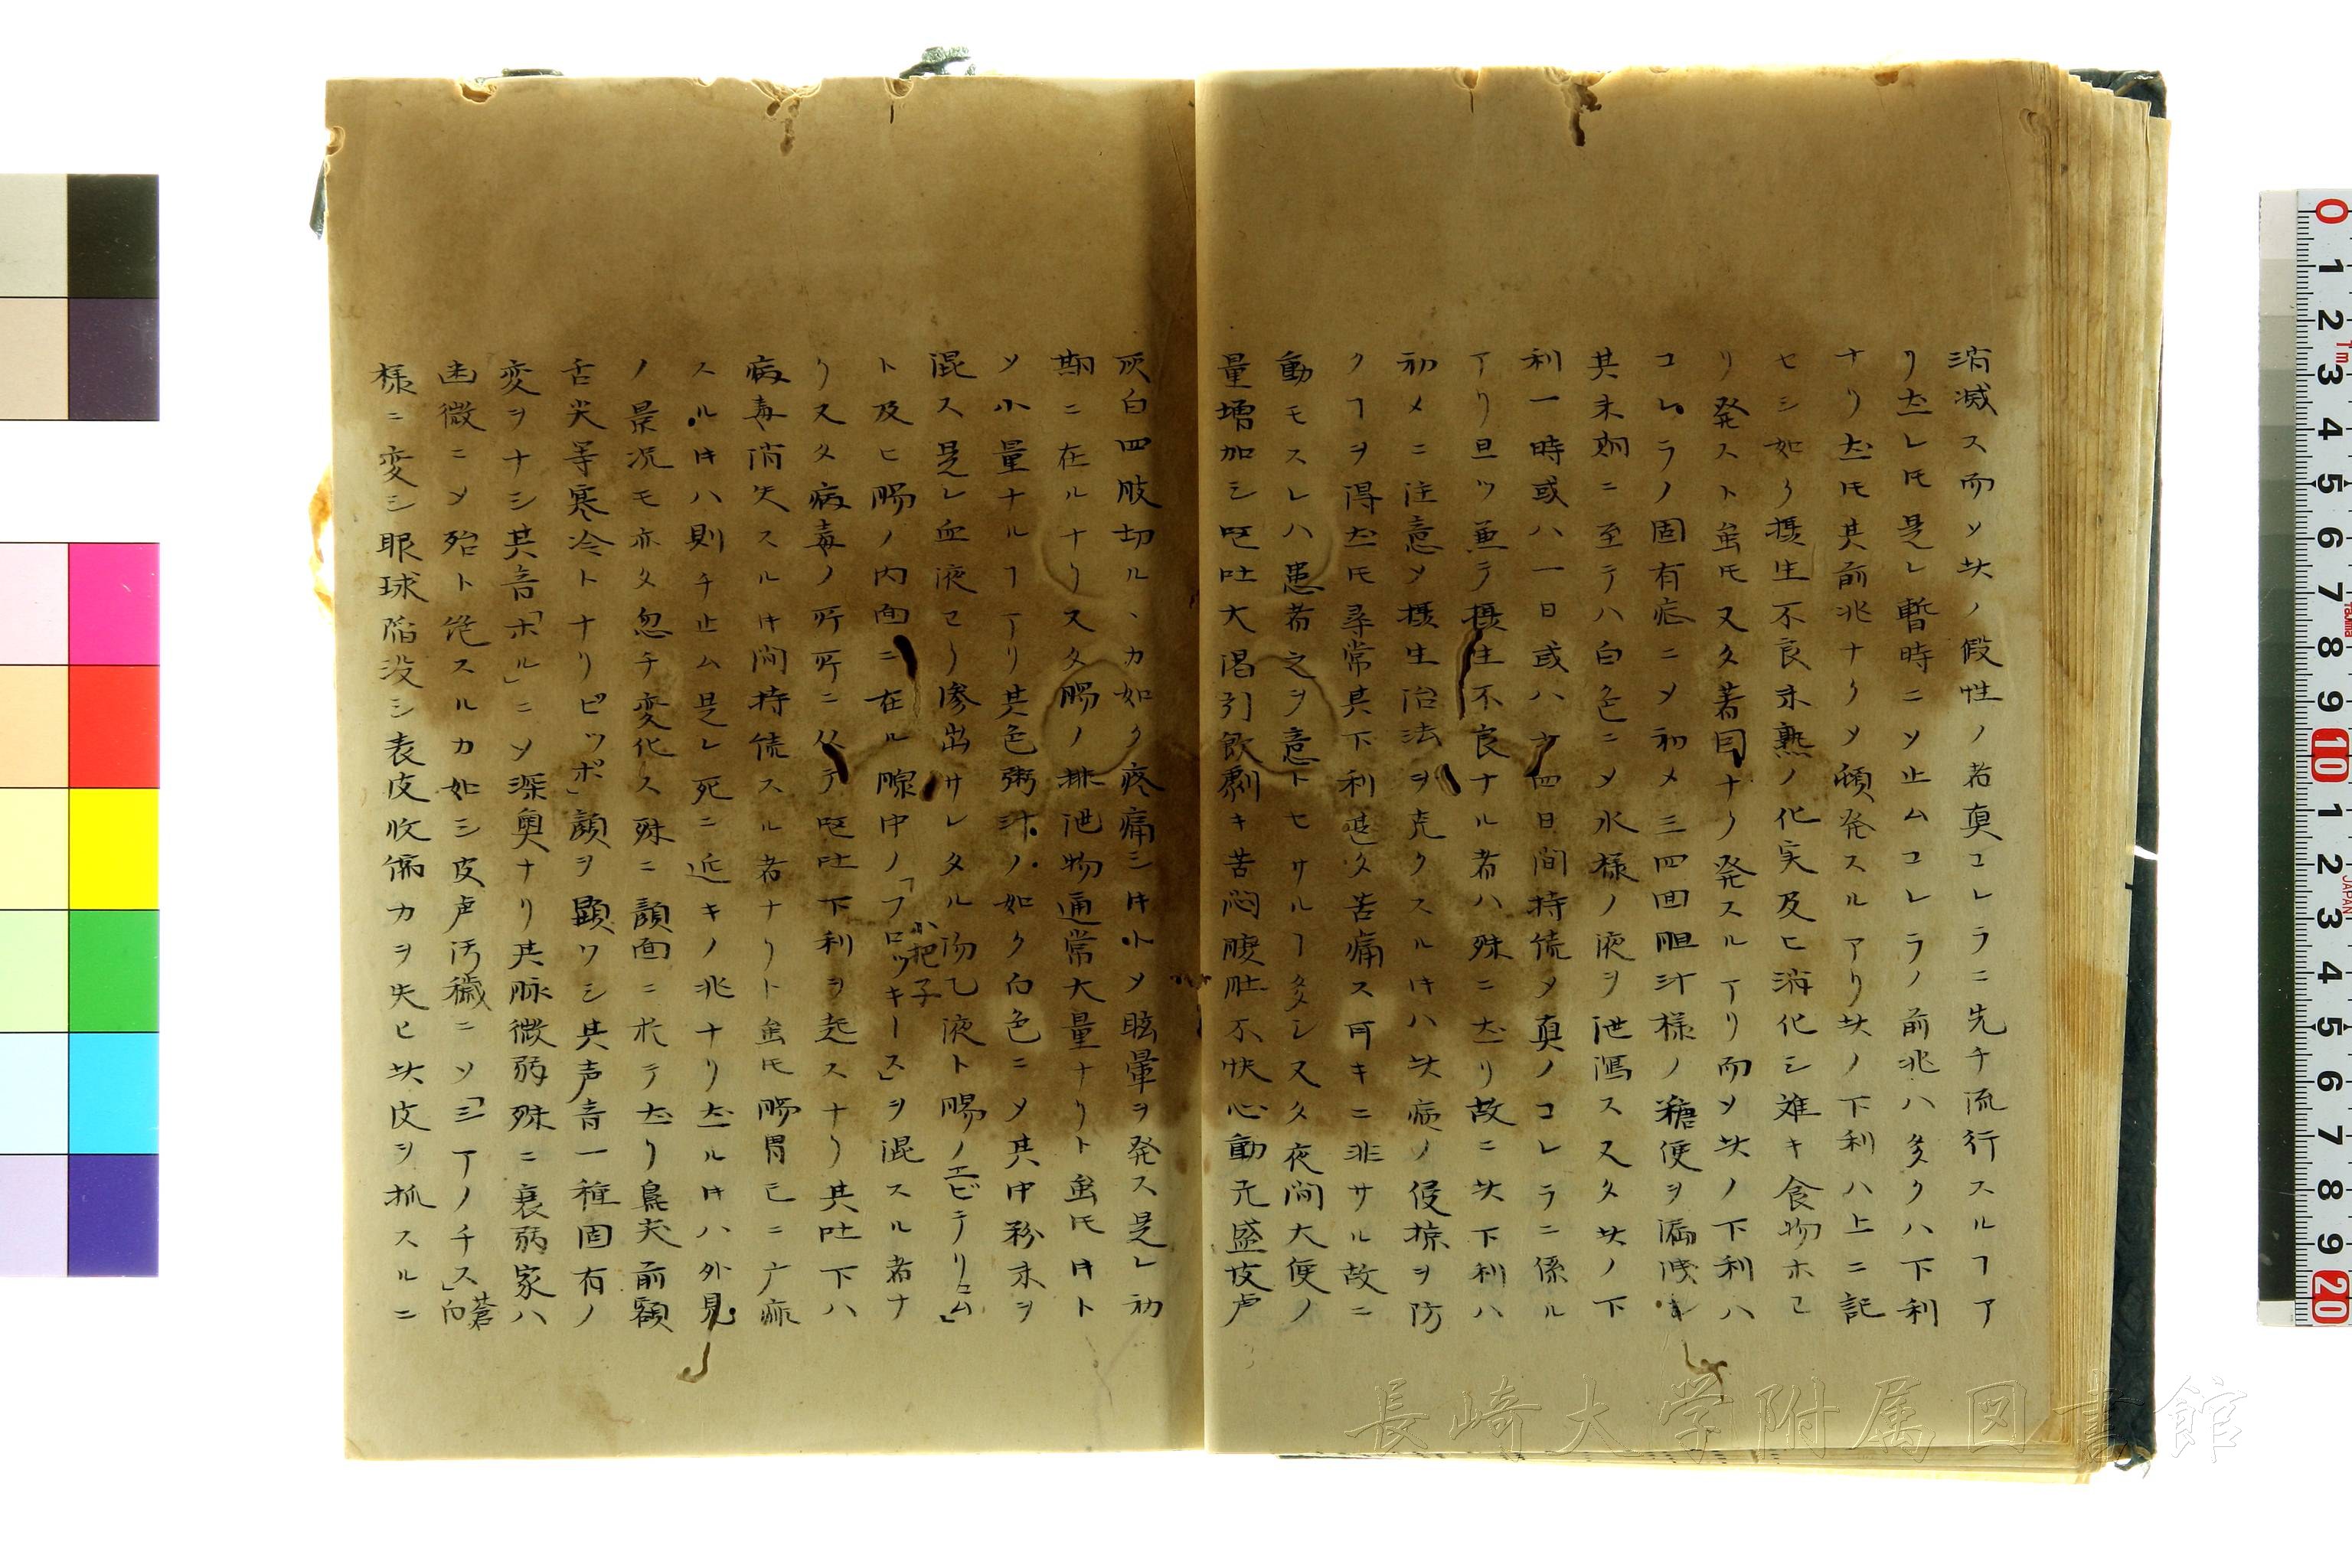 消滅ス而ソ其ノ假性ノ者真コレラニ先チ流行スルヿア
リ𪜈是レ暫時ニソ止ムコレラノ前兆ハ多クハ下利
ナリ𪜈其前兆ナクメ頓発スルアリ其ノ下利ハ上ニ記
セシ如ク摂生不良未熟ノ化実及ヒ消化シ難キ食物ホヨ
リ発スト虽𪜈又タ著因ナク発スルアリ而ソ其ノ下利ハ
コレラノ固有症ニメ初メ三四回胆汁様ノ糖便ヲ漏洩シ
其末期ニ至テハ白色ニメ水様ノ液ヲ泄瀉ス又タ其ノ下
利一時或ハ一日或ハ 四日間持続メ真ノコレラニ係ル
アリ且ツ兼テ摂生不良ナル者ハ殊ニ 故ニ其下利ハ
初メニ注意メ摂生治法ヲ克クスルキハ其病ノ侵掠ヲ防
クヿヲ得𪜈尋常其下利甚タ苦痛ス可キニ非サル故ニ
動モスレハ患者之ヲ意トセサルヿ多シ又タ夜間大便ノ
量増加シ嘔吐大渇引飲劇キ苦悶腹肚不快心動亢盛皮色
灰白四肢切ルヽカ如ク疼痛シ小メ眩暈ヲ発ス是レ初
期ニ在ルナリ又タ腸ノ排泄物通常大量ナリト虽𪜈キト
ソ小量ナルヿアリ其色粥汁ノ如ク白色ニメ其中粉末ヲ
混ス是レ血液ヨリ滲出サレタル 液ト腸ノエビテリウム
ト及ヒ腸ノ内面ニ在ル腺中ノ「フロッキース」小把子ヲ混スル者ナ
リ又タ病毒ノ所所ニ从テ嘔吐下利ヲ起スナリ其吐下ハ
病毒消失スルキ間持続スル者ナリト虽𪜈腸胃已ニ
スルキハ則チ止ム是レ死ニ近キノ兆ナリ ルキハ外見
ノ景況モ亦タ忽チ変化ス殊ニ顔面ニ於テ リ鼻尖前額
舌尖等寒冷トナリビッポ」顔ヲ顕ワシ其声音一種固有ノ
変ヲナシ其音「ホル」ニソ深奥ナリ其脉微弱殊ニ衰弱家ハ
幽微ニメ殆ト絶スルカ如シ皮色汚穢ニソ「シアノチス」蒼白
様ニ変シ眼球陥没シ表皮收縮力ヲ失ヒ其皮ヲ抓スルニ
長崎大学附属図書館